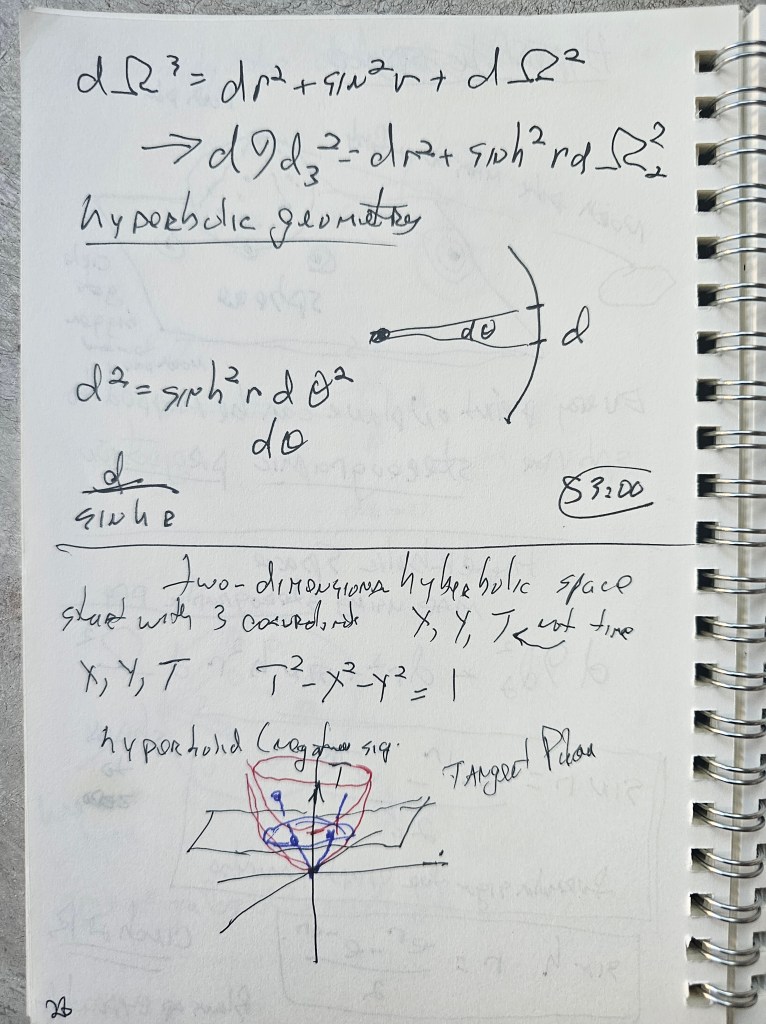 dΩ³ = dr² + sin²r + dΩ²
→ dℋ₃² = dr² + sinh² r dΩ₂²
hyperbolic geometry
dθ d
d² = sinh² r dθ²
dθ
d
sinh r
53:00
two-dimensiona hyberbolic space
start with 3 X, Y, T ← not time
X, Y, T T² - X² - Y² = 1
hyperbolid (negative sig.
Tangent Plan
T
26